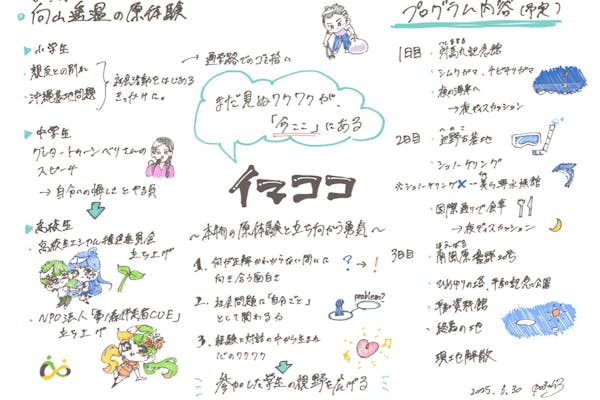 向山遥温の原体験
▶小学生
・親友との別れ
・沖縄基地問題
社会活動をはじめる
きっかけに。
→通学路でのゴミ拾い
▶中学生
グレタ・トゥーンベリさんの
スピーチ
→自分への悔しさと
▶高校生
高校生エシカル推進委員会
立ち上げ
NPO法人
立ち上げ
まだ見ぬワクワクが、
「今ここ」にある
イマココ
～本物の原体験と立ち向かう勇気～
1. 何が正解かわからない問いに
向き合う面白さ
? → !
2. 社会問題に「自分ごと」
として関わる力
problem?
3. 経験と対話の中から生まれ
るワクワク
参加した学生の視野を広げる
プログラム内容(予定)
1日目
対馬丸記念館
・シムクガマ、チビチリガマ
・夜の海岸へ
→夜ディスカッション
2日目
へのこ
・辺野古基地
・シュノーケリング
※シュノーケリング✕…美ら海水族館
・国際通りで食事
→夜ディスカッション
3日目
はえばる
・南風原壕20号
・ひめゆりの塔、平和祈念公園
・平和資料館
・終焉の地
現地解散
2025.6.30